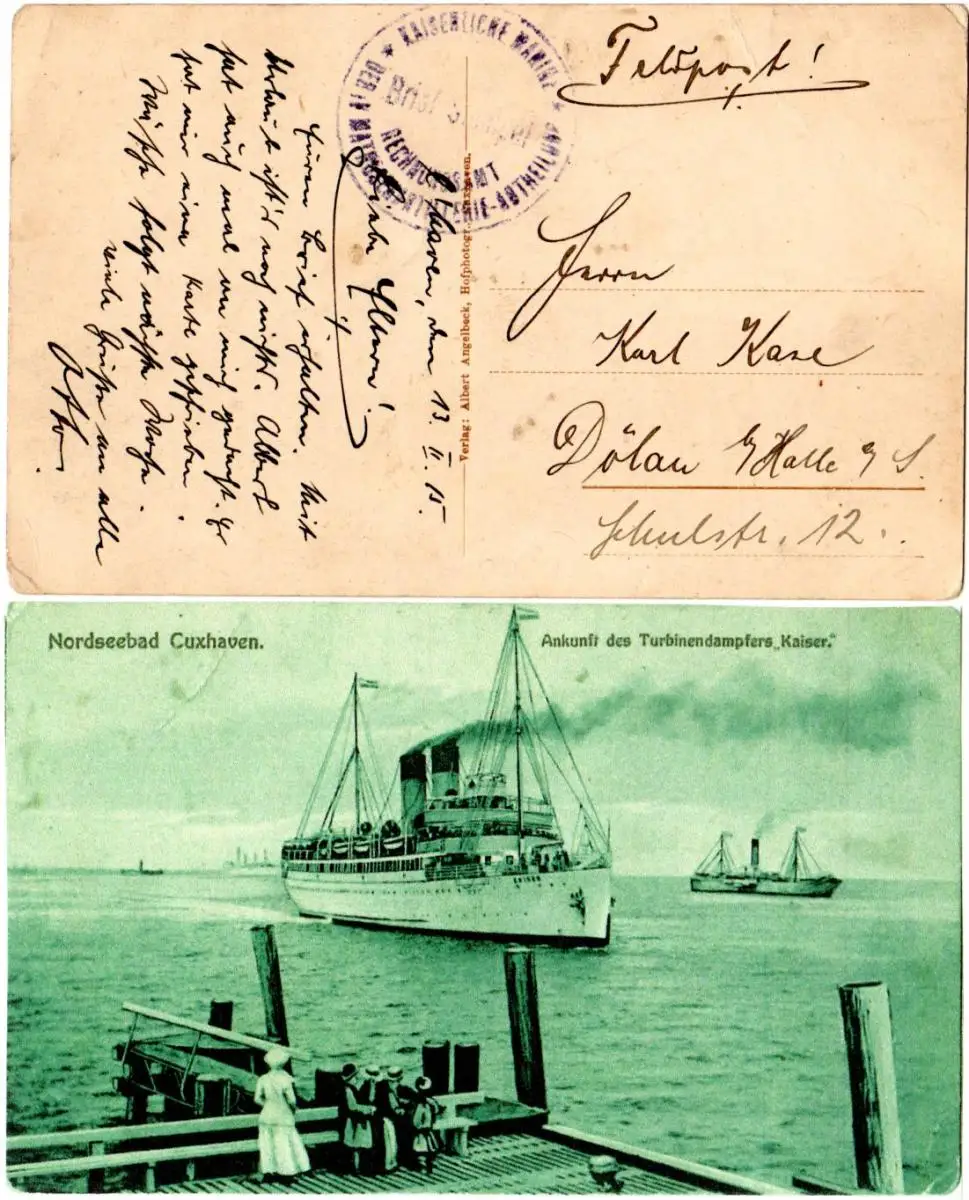 Feldpost!
KAISERLICHE MARINE
Brief Stempel
RECHNUNGSAMT
DER IV MATROSENARTILLERIE-ABTHEILUNG
Verlag: Albert Angelbeck, Hofphotogr. Cuxhaven.
Herrn
Karl Kase
Dölau b/Halle a/S.
Schulstr. 12.
C'haven, den 13.II.15.
Liebe Eltern!
Euren Brief erhalten. Mit
Urlaub ist's noch nichts. Albert
hat auch mal an mich gedacht. Er
hat mir eine Karte geschrieben.
Wäsche folgt nächste Woche.
viele Grüße an alle
Otto.
Nordseebad Cuxhaven.
Ankunft des Turbinendampfers „Kaiser."
KAISER